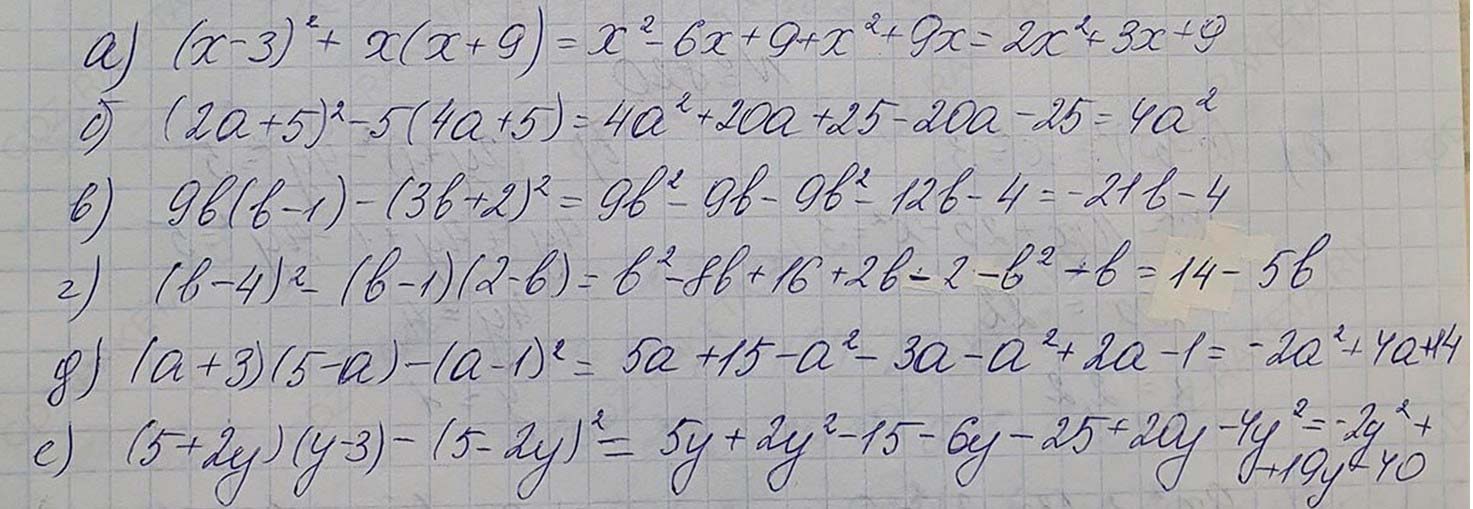 а) (x-3)² + x(x+9) = x² - 6x + 9 + x² + 9x = 2x² + 3x + 9
б) (2a+5)² - 5(4a+5) = 4a² + 20a + 25 - 20a - 25 = 4a²
в) 9b(b-1) - (3b+2)² = 9b² - 9b - 9b² - 12b - 4 = -21b - 4
г) (b-4)² - (b-1)(2-b) = b² - 8b + 16 + 2b - 2 - b² + b = 14 - 5b
д) (a+3)(5-a) - (a-1)² = 5a + 15 - a² - 3a - a² + 2a - 1 = -2a² + 4a + 14
е) (5+2y)(y-3) - (5-2y)² = 5y + 2y² - 15 - 6y - 25 + 20y - 4y² = -2y² +
+19y - 40